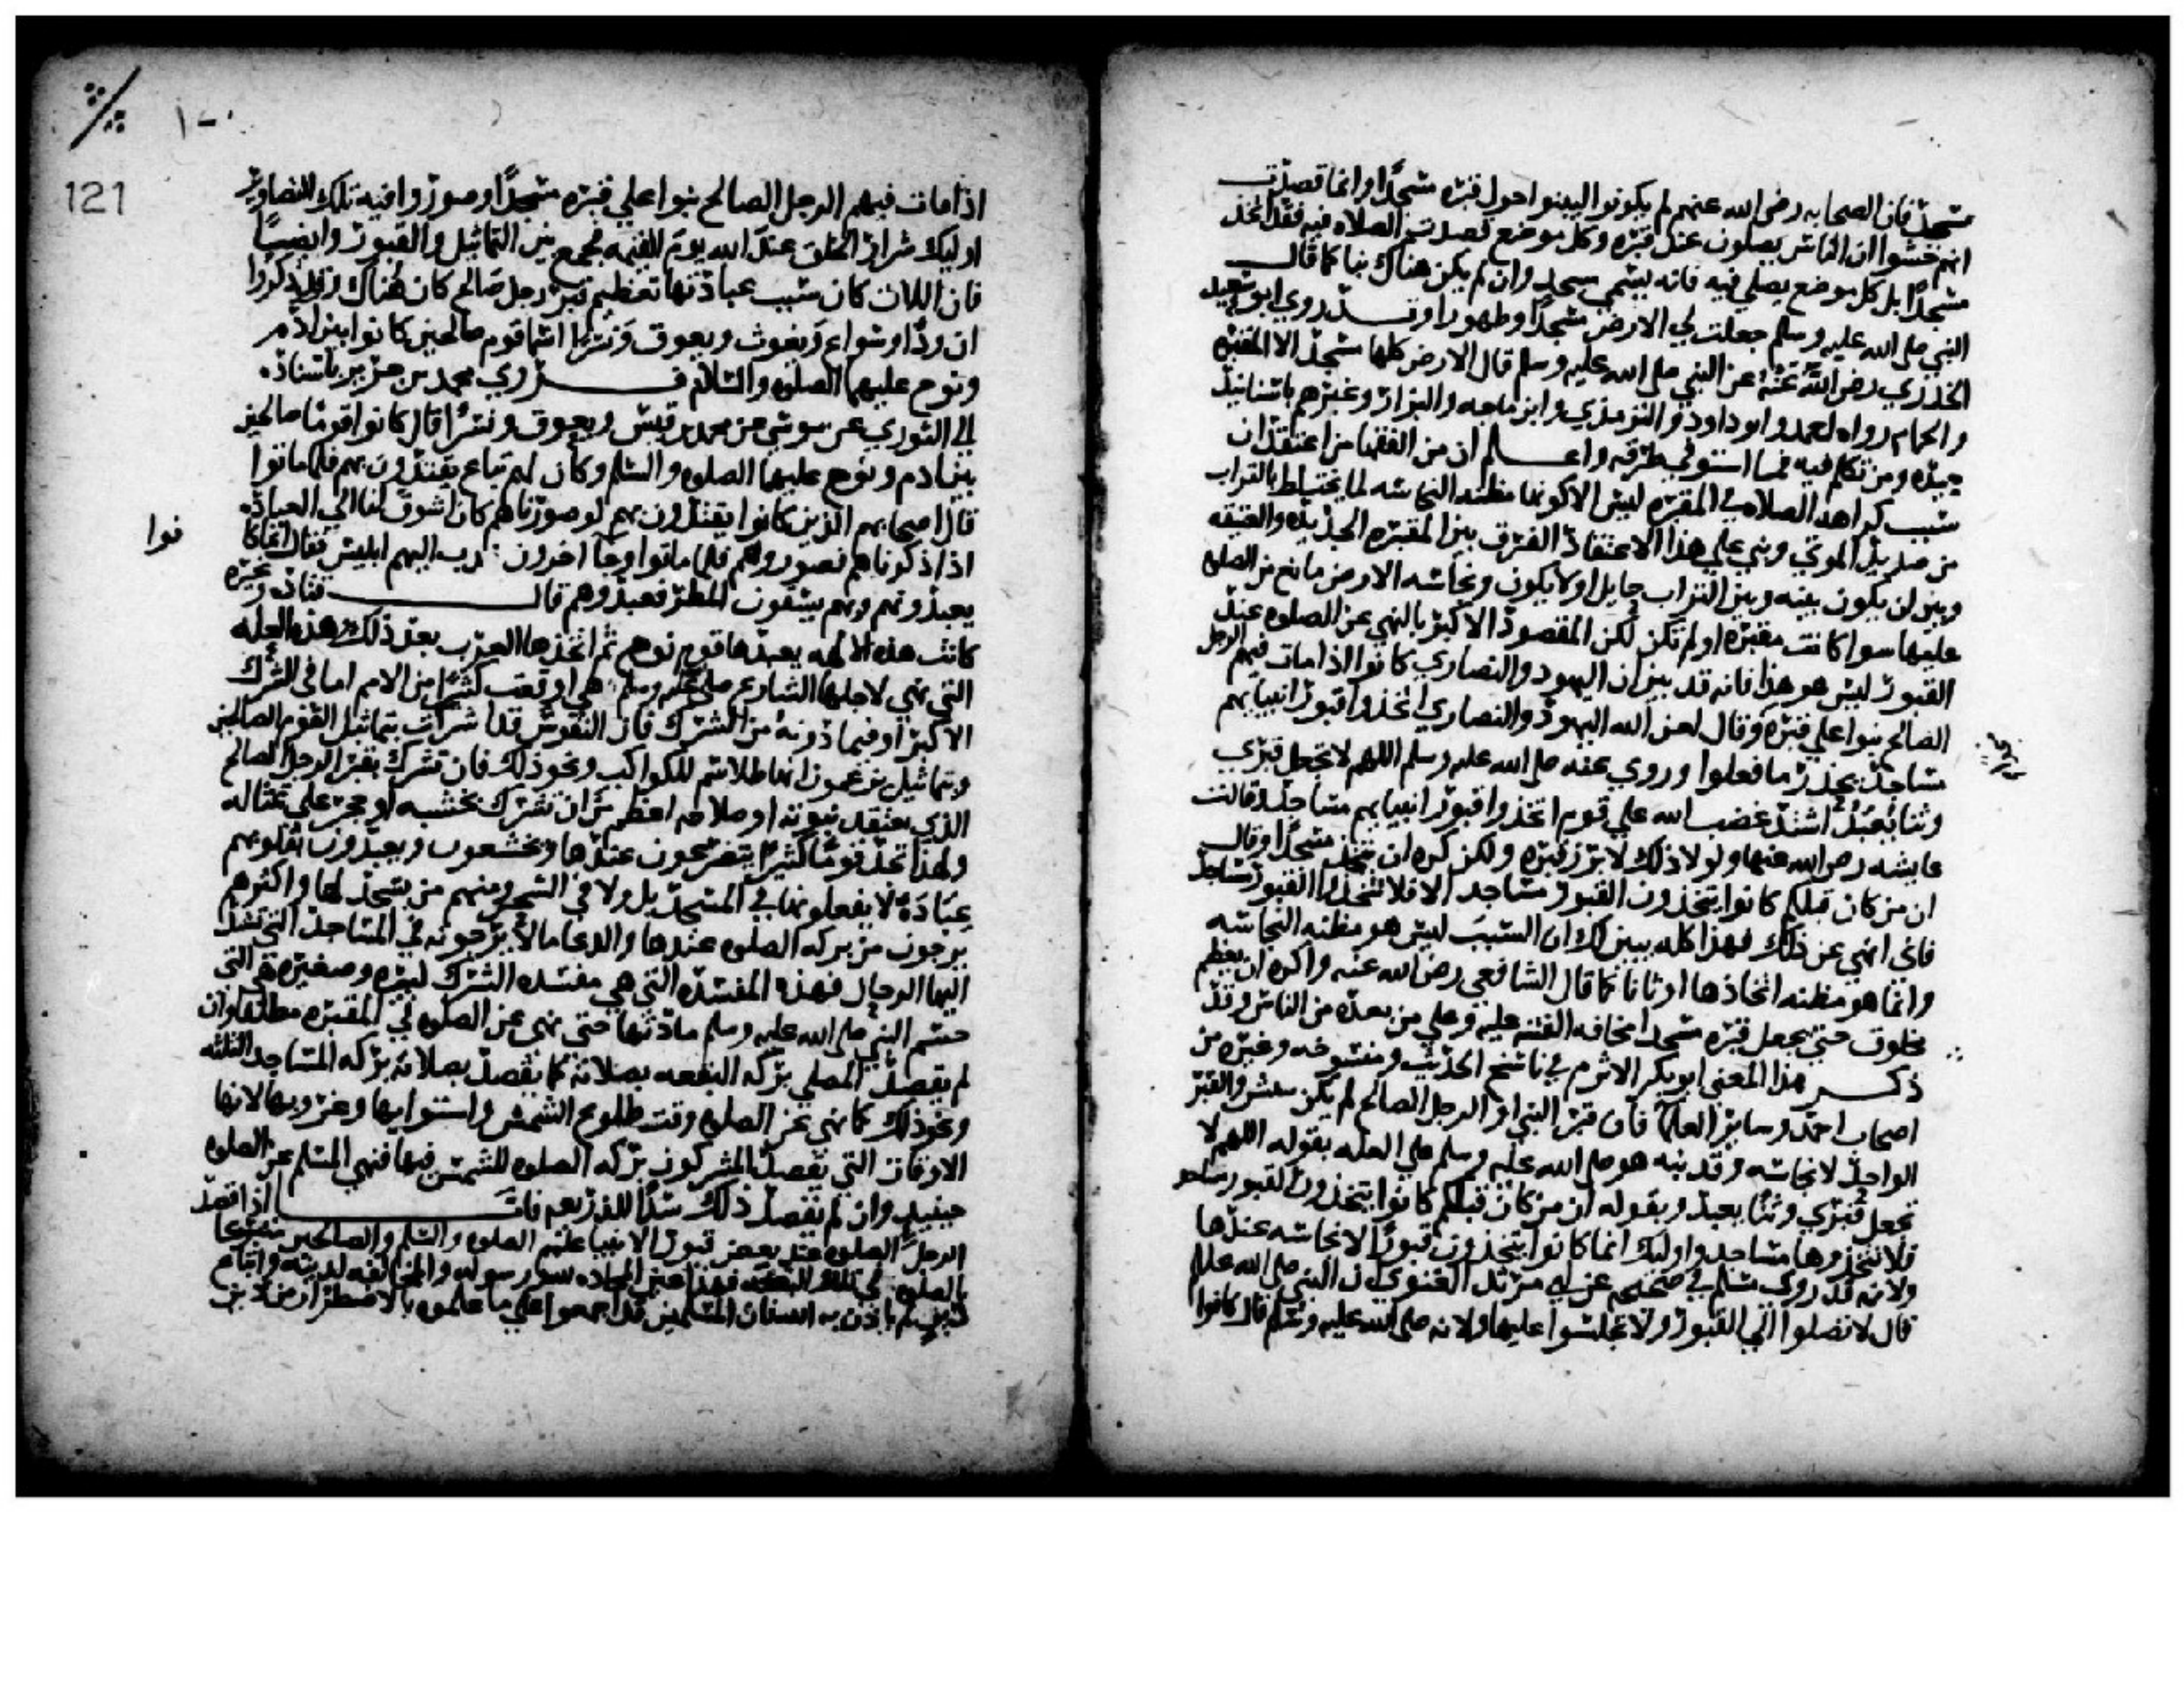 مسجد فان الصحابه رضي الله عنهم لم يكونوا ليبنوا حول قبره مسجدا وانما قصدت
انهم خشوا ان الناس يصلون عند قبره وكل موضع قصدتم الصلاه فيه فقد اتخذ
مسجدا بل كل موضع يصلي فيه فانه يسمي مسجد وان لم يكن هناك بنا كما قال
النبي صلي الله عليه وسلم جعلت لي الارض مسجدا وطهورا وقد روي ابو سعيد
الخدري رضي الله عنه عن النبي صلي الله عليه وسلم قال الارض كلها مسجد الا المقبره
والحمام رواه احمد وابو داود والترمذي وابن ماجه والبزار وغيرهم باسانيد
جيده ومن تكلم فيه فما استوفي طرقه واعلم ان من الفقها من اعتقد ان
سبب كراهه الصلاه في المقبره ليس الا كونها مظنه النجاسه لما يختلط بالتراب
من صديد الموتي وبني علي هذا الاعتقاد الفرق بين المقبره الجديده والعتيقه
وبين ان يكون بينه وبين التراب حايل اولا يكون ونجاسه الارض مانع من الصلوه
عليها سوا كانت مقبره او لم تكن لكن المقصود الاكبر بالنهي عن الصلوه عند
القبور ليس هو هذا فانه قد بين ان اليهود والنصاري كانوا اذا مات فيهم الرجل
الصالح بنوا علي قبره وقال لعن الله اليهود والنصاري اتخذوا قبور انبيايهم
مساجد يحذر ما فعلوا وروي عنه صلي الله عليه وسلم اللهم لا تجعل قبري
وثنا يعبد اشتد غضب الله علي قوم اتخذوا قبور انبيايهم مساجد وقالت
عايشه رضي الله عنها ولولا ذلك لابرز قبره ولكن كره ان يتخذ مسجدا وقال
ان من كان قبلكم كانوا يتخذون القبور مساجد الا فلا تتخذوا القبور مساجد
فاني انهي عن ذلك فهذا كله يبين لك ان السبب ليس هو مظنه النجاسه
وانما هو مظنه اتخاذها اوثانا كما قال الشافعي رضي الله عنه واكره ان يعظم
مخلوق حتي يجعل قبره مسجدا مخافه الفتنه عليه وعلي من بعده من الناس وقد
ذكر هذا المعني ابو بكر الاثرم في ناسخ الحديث ومنسوخه وغيره من
اصحاب احمد وساير العلما فان قبر النبي او الرجل الصالح لم يكن ينبش والقبر
الواحد لا نجاسه وقد نبه هو صلي الله عليه وسلم علي العله بقوله اللهم لا
تجعل قبري وثنا يعبد وبقوله ان من كان قبلكم كانوا يتخذون القبور مساجد
فلا تتخذوها مساجد واوليك انما كانوا يتخذون قبورا لا نجاسه عندها
ولانه قد روي مسلم في صحيحه عن ابي مرثد الغنوي ان النبي صلي الله عليه
قال لا تصلوا الي القبور ولا تجلسوا عليها ولانه صلي الله عليه وسلم قال كانوا
١٢٠
121
اذا مات فيهم الرجل الصالح بنوا علي قبره مسجدا وصوروا فيه تلك التصاوير
اوليك شرار الخلق عند الله يوم القيمه فجمع بين التماثيل والقبور وايضا
فان اللات كان سبب عبادتها تعظيم قبر رجل صالح كان هناك وقد ذكروا
ان ودا وسواع ويغوث ويعوق ونسرا اسما قوم صالحين كانوا بين ادم
ونوح عليهما الصلوه والسلام فروي محمد بن جرير باسناده
الي الثوري عن موسي عن محمد بن قيس ويعوق ونسرا قال كانوا قوما صالحين
بين ادم ونوح عليهما الصلوه والسلم وكان لهم تباع يقتدون بهم فلما ماتوا
قال اصحابهم الذين كانوا يقتدون بهم لو صورناهم كان اشوق لنا الي العباده
اذا ذكرناهم فصوروهم فلما ماتوا وجا اخرون دب اليهم ابليس فقال انما كا
نوا
يعبدونهم وبهم يسقون المطر فعبدوهم قال قتاده وغيره
كانت هذه الالهه يعبدها قوم نوح ثم اتخذها العرب بعد ذلك وهذه العله
التي نهي لاجلها الشارع صلي عليه وسلم هي اوقعت كثيرا من الامم اما في الشرك
الاكبر او فيما دونه من الشرك فان النفوس قد اشركت بتماثيل القوم الصالحين
وبتماثيل يزعمون انها طلاسم للكواكب ونحو ذلك فان تشرك بقبر الرجل الصالح
الذي يعتقد نبوته او صلاحه اعظم من ان تشرك بخشبه او حجر علي تمثاله
ولهذا تجد قوما كثيرا يتضرعون عندها ويخشعون ويعبدون بقلوبهم
عبادة لا يفعلونها في المسجد بل ولا في السحر ومنهم من يسجد لها واكثرهم
يرجون من بركه الصلوه عندها والدعا ما لا يرجونه في المساجد التي تشد
اليها الرحال فهذه المفسده التي هي مفسده الشرك كبيره وصغيره هي التي
حسم النبي صلي الله عليه وسلم مادتها حتي نهي عن الصلوه في المقبره مطلقا وان
لم يقصد المصلي بركه البقعه بصلاته كما يقصد بصلاته بركه المساجد الثلثه
ونحو ذلك كما نهي عن الصلوه وقت طلوع الشمس واستوايها وغروبها لانها
الاوقات التي يقصد المشركون بركه الصلوه للشمس فيها فنهي المسلم عن الصلوه
حينيذ وان لم يقصد ذلك سدا للذريعه فاما اذا قصد
الرجل الصلوه عند بعض قبور الانبيا عليهم الصلوه والسلم والصالحين متبركا
بالصلوه في تلك البقعه فهذا عين المحاده لله ورسوله والمخالفه لدينه وابتداع
دين لم ياذن به الله فان المسلمين قد اجمعوا علي ما علموه بالاضطرار من دين